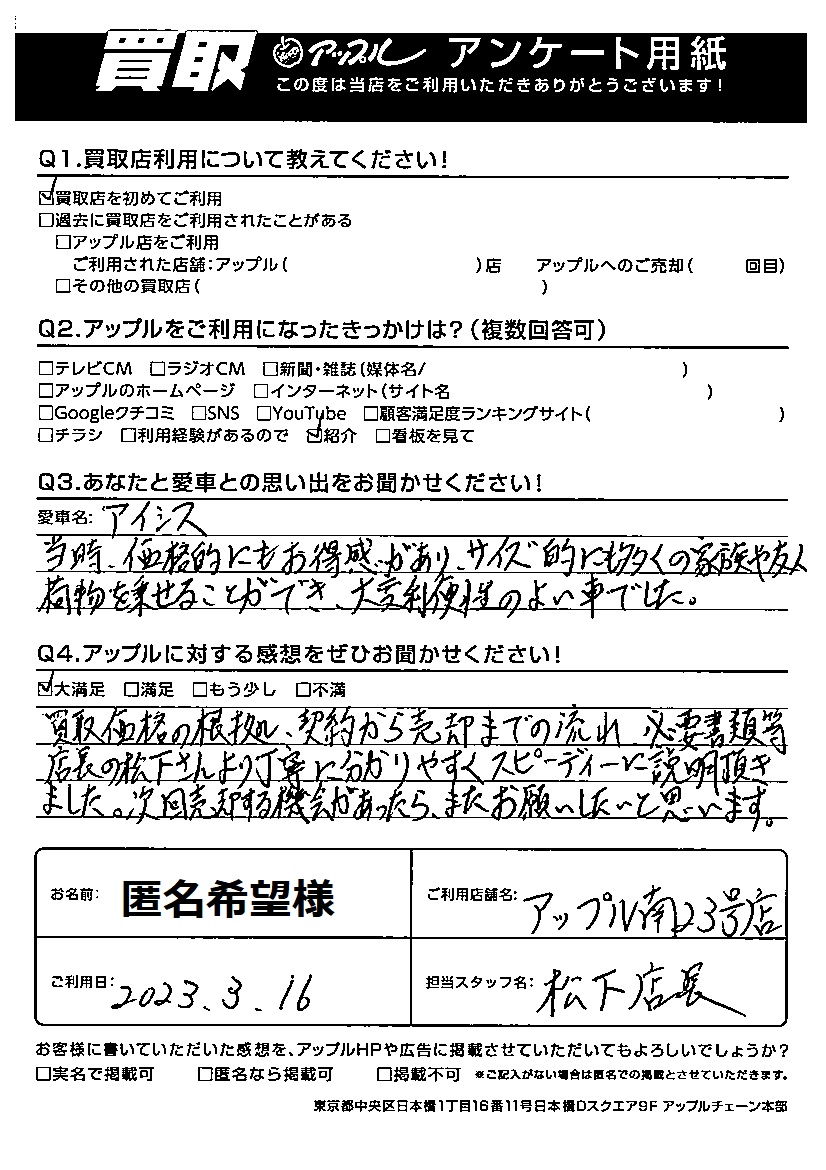 買取 アップル アンケート用紙
この度は当店をご利用いただきありがとうございます!
Q1.買取店利用について教えてください!
☑買取店を初めてご利用
□過去に買取店をご利用されたことがある
□アップル店をご利用
ご利用された店舗:アップル( )店 アップルへのご売却( 回目)
□その他の買取店( )
Q2.アップルをご利用になったきっかけは?(複数回答可)
□テレビCM □ラジオCM □新聞・雑誌(媒体名/ )
□アップルのホームページ □インターネット(サイト名 )
□Googleクチコミ □SNS □YouTube □顧客満足度ランキングサイト( )
□チラシ □利用経験があるので ☑紹介 □看板を見て
Q3.あなたと愛車との思い出をお聞かせください!
愛車名: アイシス
当時、価格的にもお得感があり、サイズ的にも多くの家族や友人
荷物を乗せることができ、大変利便性のよい車でした。
Q4.アップルに対する感想をぜひお聞かせください!
☑大満足 □満足 □もう少し □不満
買取価格の根拠、契約から売却までの流れ、必要書類等
店長の松下さんより丁寧に分かりやすくスピーディーに説明頂き
ました。次回売却する機会があったら、またお願いしたいと思います。
お名前: 匿名希望様 ご利用店舗名: アップル南23号店
ご利用日: 2023.3.16 担当スタッフ名: 松下店長
お客様に書いていただいた感想を、アップルHPや広告に掲載させていただいてもよろしいでしょうか?
□実名で掲載可 □匿名なら掲載可 □掲載不可 *ご記入がない場合は匿名での掲載とさせていただきます。
東京都中央区日本橋1丁目16番11号日本橋Dスクエア9F アップルチェーン本部